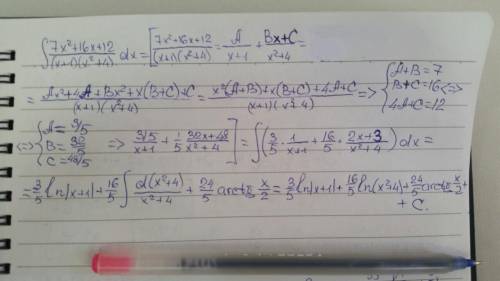 ∫ (7x²+16x+12)/((x+1)(x²+4)) dx = [ (7x²+16x+12)/((x+1)(x²+4)) = A/(x+1) + (Bx+C)/(x²+4) =
= (Ax²+4A+Bx²+x(B+C)+C)/((x+1)(x²+4)) = (x²(A+B)+x(B+C)+4A+C)/((x+1)(x²+4)) => { A+B=7 B+C=16 4A+C=12 <=>
<=> { A=3/5 B=32/5 C=48/5 => (3/5)/(x+1) + 1/5 (32x+48)/(x²+4) ] = ∫(3/5 · 1/(x+1) + 16/5 · (2x+3)/(x²+4)) dx =
= 3/5 ln|x+1| + 16/5 ∫ d(x²+4)/(x²+4) + 24/5 arctg x/2 = 3/5 ln|x+1| + 16/5 ln(x²+4) + 24/5 arctg x/2 +
+ C.